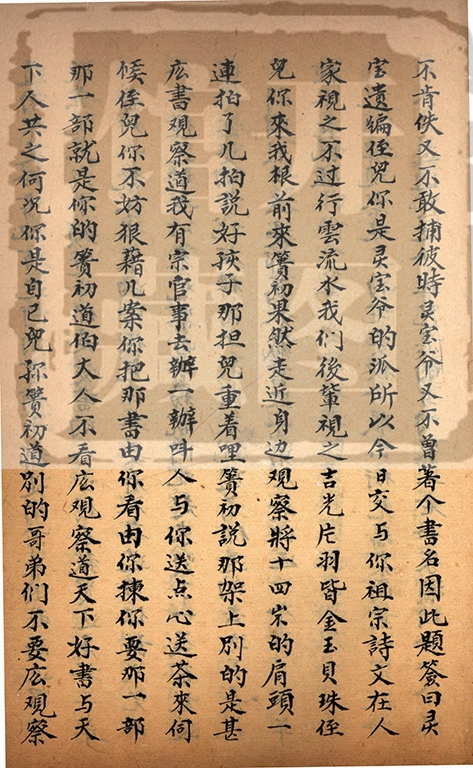 不肯佚又不敢捕彼時灵宝爷又不曾著个書名因此題簽曰灵
宝遺編侄兒你是灵宝爷的派所以今日交与你祖宗詩文在人
家視之不过行雲流水我們後輩視之吉光片羽皆金玉貝珠侄
兒你來我根前來簣初果然走近身边观察將十四岁的肩頭一
連拍了几拍説好孩子那担兒重着哩簣初説那架上別的是甚
庅書观察道我有宗官事去辦一辦呌人与你送点心送茶來伺
候侄兒你不妨狠藉几案你把那書由你看由你揀你要那一部
那一部就是你的簣初道伯大人不看庅观察道天下好書与天
下人共之何况你是自己兒孫簣初道別的哥弟們不要庅观察